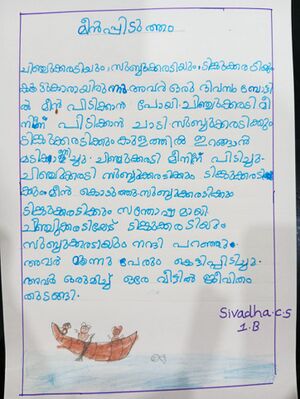 മീൻപ്പിടുത്തം
ചിഞ്ചുക്കരടിയും, സുബ്ബുക്കരടിയും, ടിങ്കുക്കരടിയും
കൂട്ടുകാരായിരുന്നു അവർ ഒരു ദിവസം ബോട്ടിൽ
മീൻ പിടിക്കാൻ പോയി. ചിഞ്ചുക്കരടി മീ
നിനെ പിടിക്കാൻ ചാടി സുബ്ബുക്കരടിക്കും
ടിങ്കുക്കരടിക്കും കുളത്തിൽ ഇറങ്ങാൻ
മടിച്ചു. ചിഞ്ചുക്കരടി മീനിനെ പിടിച്ചു.
ചിഞ്ചുക്കരടി സുബ്ബുക്കരടിക്കും ടിങ്കുക്കരടി
ക്കും മീൻ കൊടുത്തു സുബ്ബുക്കരടിക്കും
ടിങ്കുക്കരടിക്കും സന്തോഷമായി
ചിഞ്ചുക്കരടിയോട് ടിങ്കുക്കരടിയും
സുബ്ബുക്കരടിയും നന്ദി പറഞ്ഞു.
അവർ മൂന്നു പേരും കെട്ടിപ്പിടിച്ചു.
അവർ ഒരുമിച്ച് ഒരേ വീട്ടിൽ ജീവിതം
തുടങ്ങി.
Sivadha.c.s
1.B